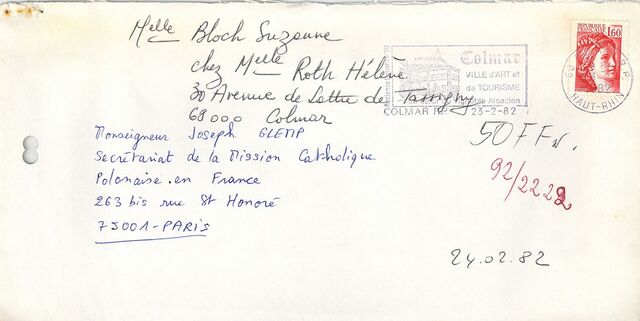 Melle Bloch Suzanne
chez Melle Roth Hélène
30 Avenue de Lattre de Tassigny
68000 Colmar
Colmar
VILLE D'ART et
de TOURISME
Alsacien
COLMAR 23-2-82
1,60
HAUT-RHIN
Monseigneur Joseph GLEMP
Secrétariat de la Mission Catholique
Polonaise en France
263 bis rue St Honoré
75001-PARIS
50 FF
92/2222
24.02.82